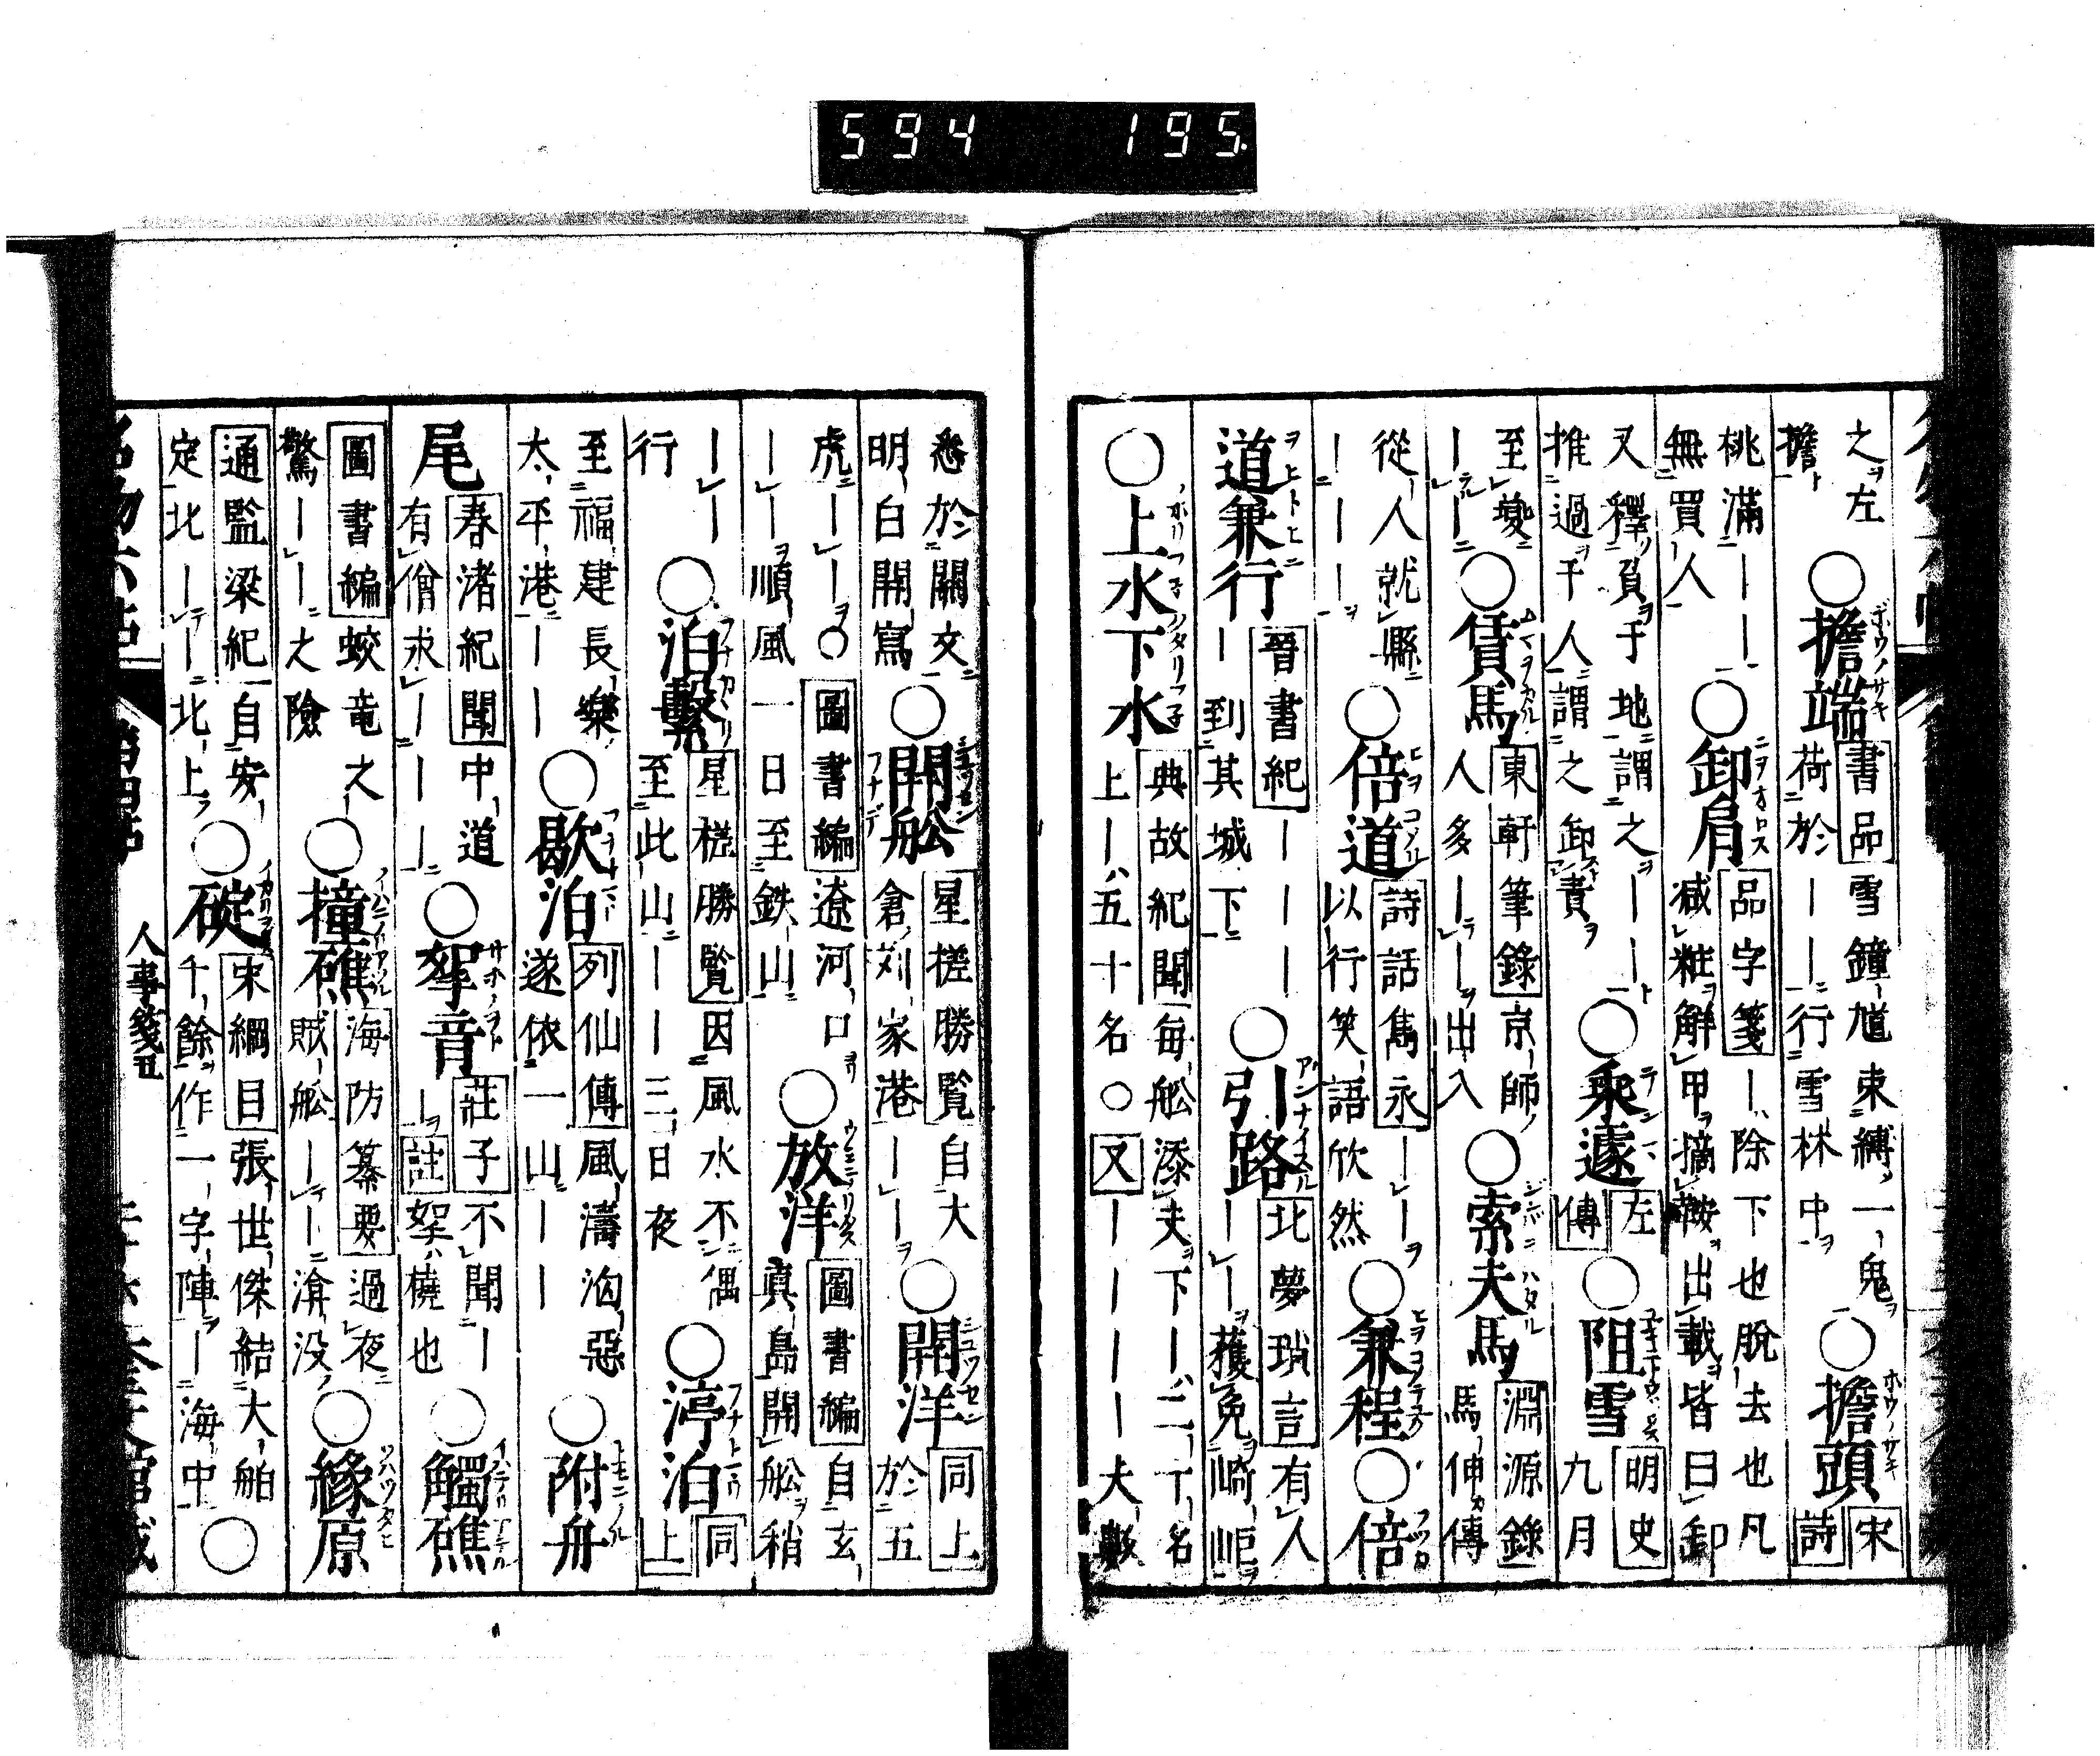 594 195
之左擔○擔端書品雪鐘馗束縛一鬼荷於――行雪林中○擔頭宋詩
桃滿――無買人○卸肩品字箋―除下也脫去也凡減粧解甲摘鞍出載皆曰卸
又釋負于地謂之――推過于人謂之卸責○乘遽左傳○阻雪明史九月
至夔――○賃馬東軒筆錄京師人多――出入○索夫馬淵源錄馬伸傳
從人就縣―――○倍道詩話雋永――以行笑語欣然○兼程○倍
道兼行晉書紀――――到其城下○引路北夢瑣言有人――獲免崎岖
○上水下水典故紀聞每舩添夫下―二丁名上―五十名○又――――夫數
悉於關文明白開寫○開舩星槎勝覧自大倉刘家港――○開洋同上於五
虎――○圖書編遼河口――順風一日至鉄山○放洋圖書編自玄真島開舩稍
――行○泊繫星槎勝覧因風水不偶至此山――三日夜○渟泊同上
至福建長樂太平港――○歇泊列仙傳風濤洶惡遂依一山――○附舟
尾春渚紀聞中道有僧求―――○挐音莊子不聞――註挐橈也○觸礁
圖書編蛟竜之驚――之險○撞礁海防纂要過夜賊舩――渰没○緣原
通監梁紀自安定北――北上○碇宋綱目張世傑結大舶千餘作一字陣―海中○
人事箋五